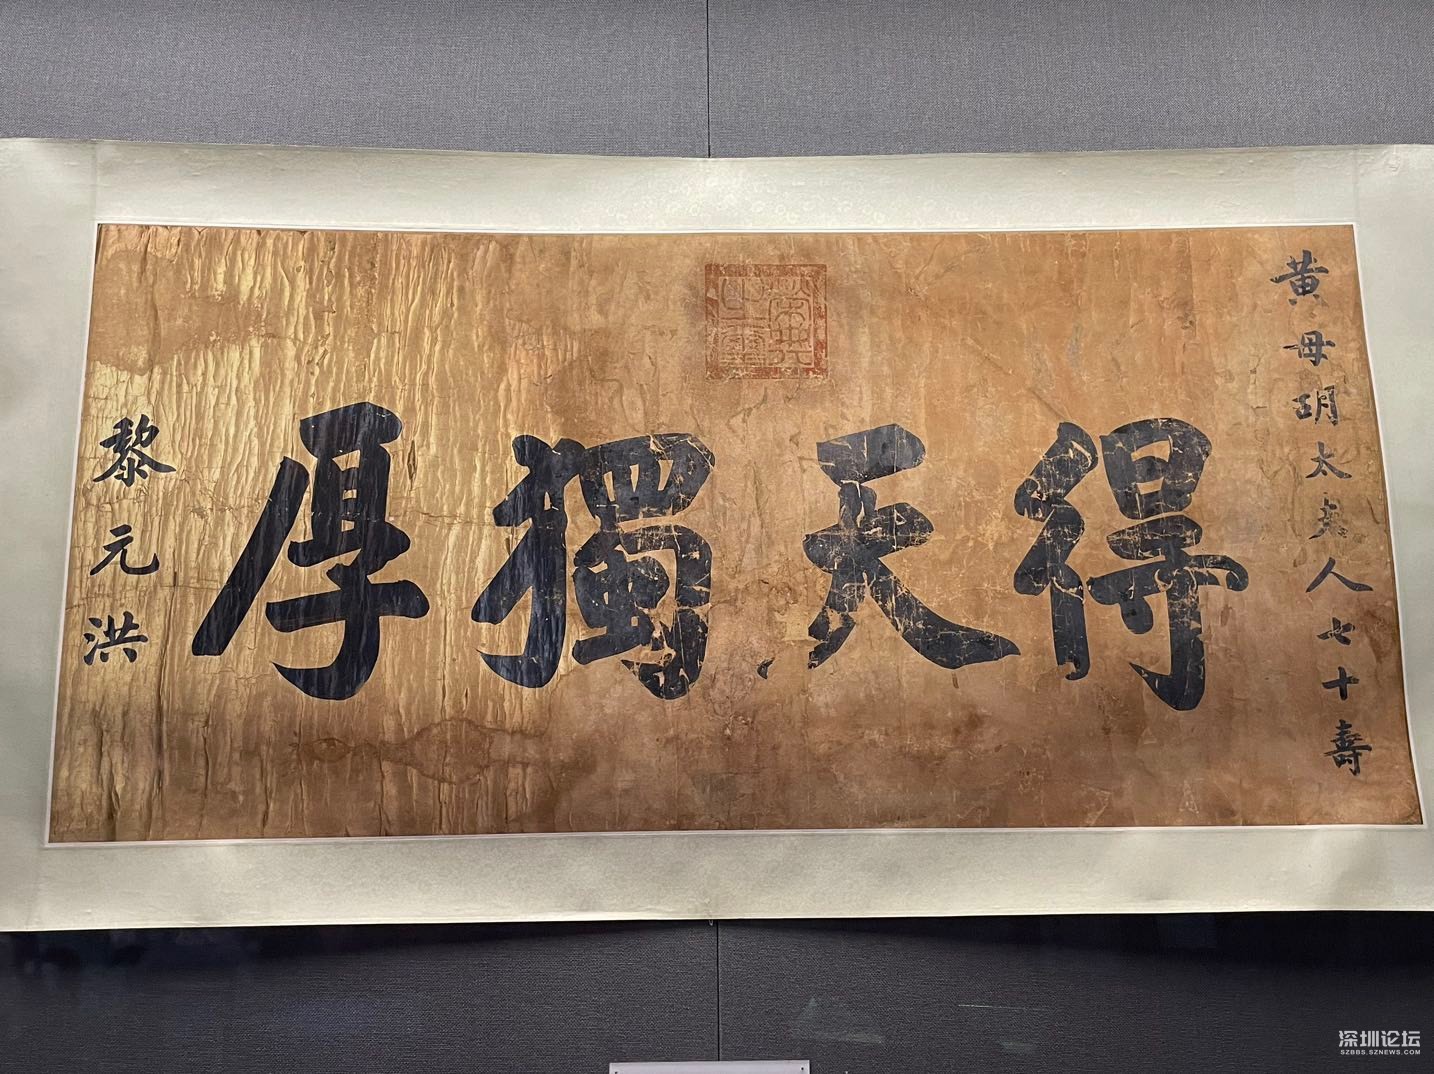 黄母胡太夫人七十壽
得天獨厚
黎元洪
榮典之璽
深圳论坛
SZBBS.SZNEWS.COM